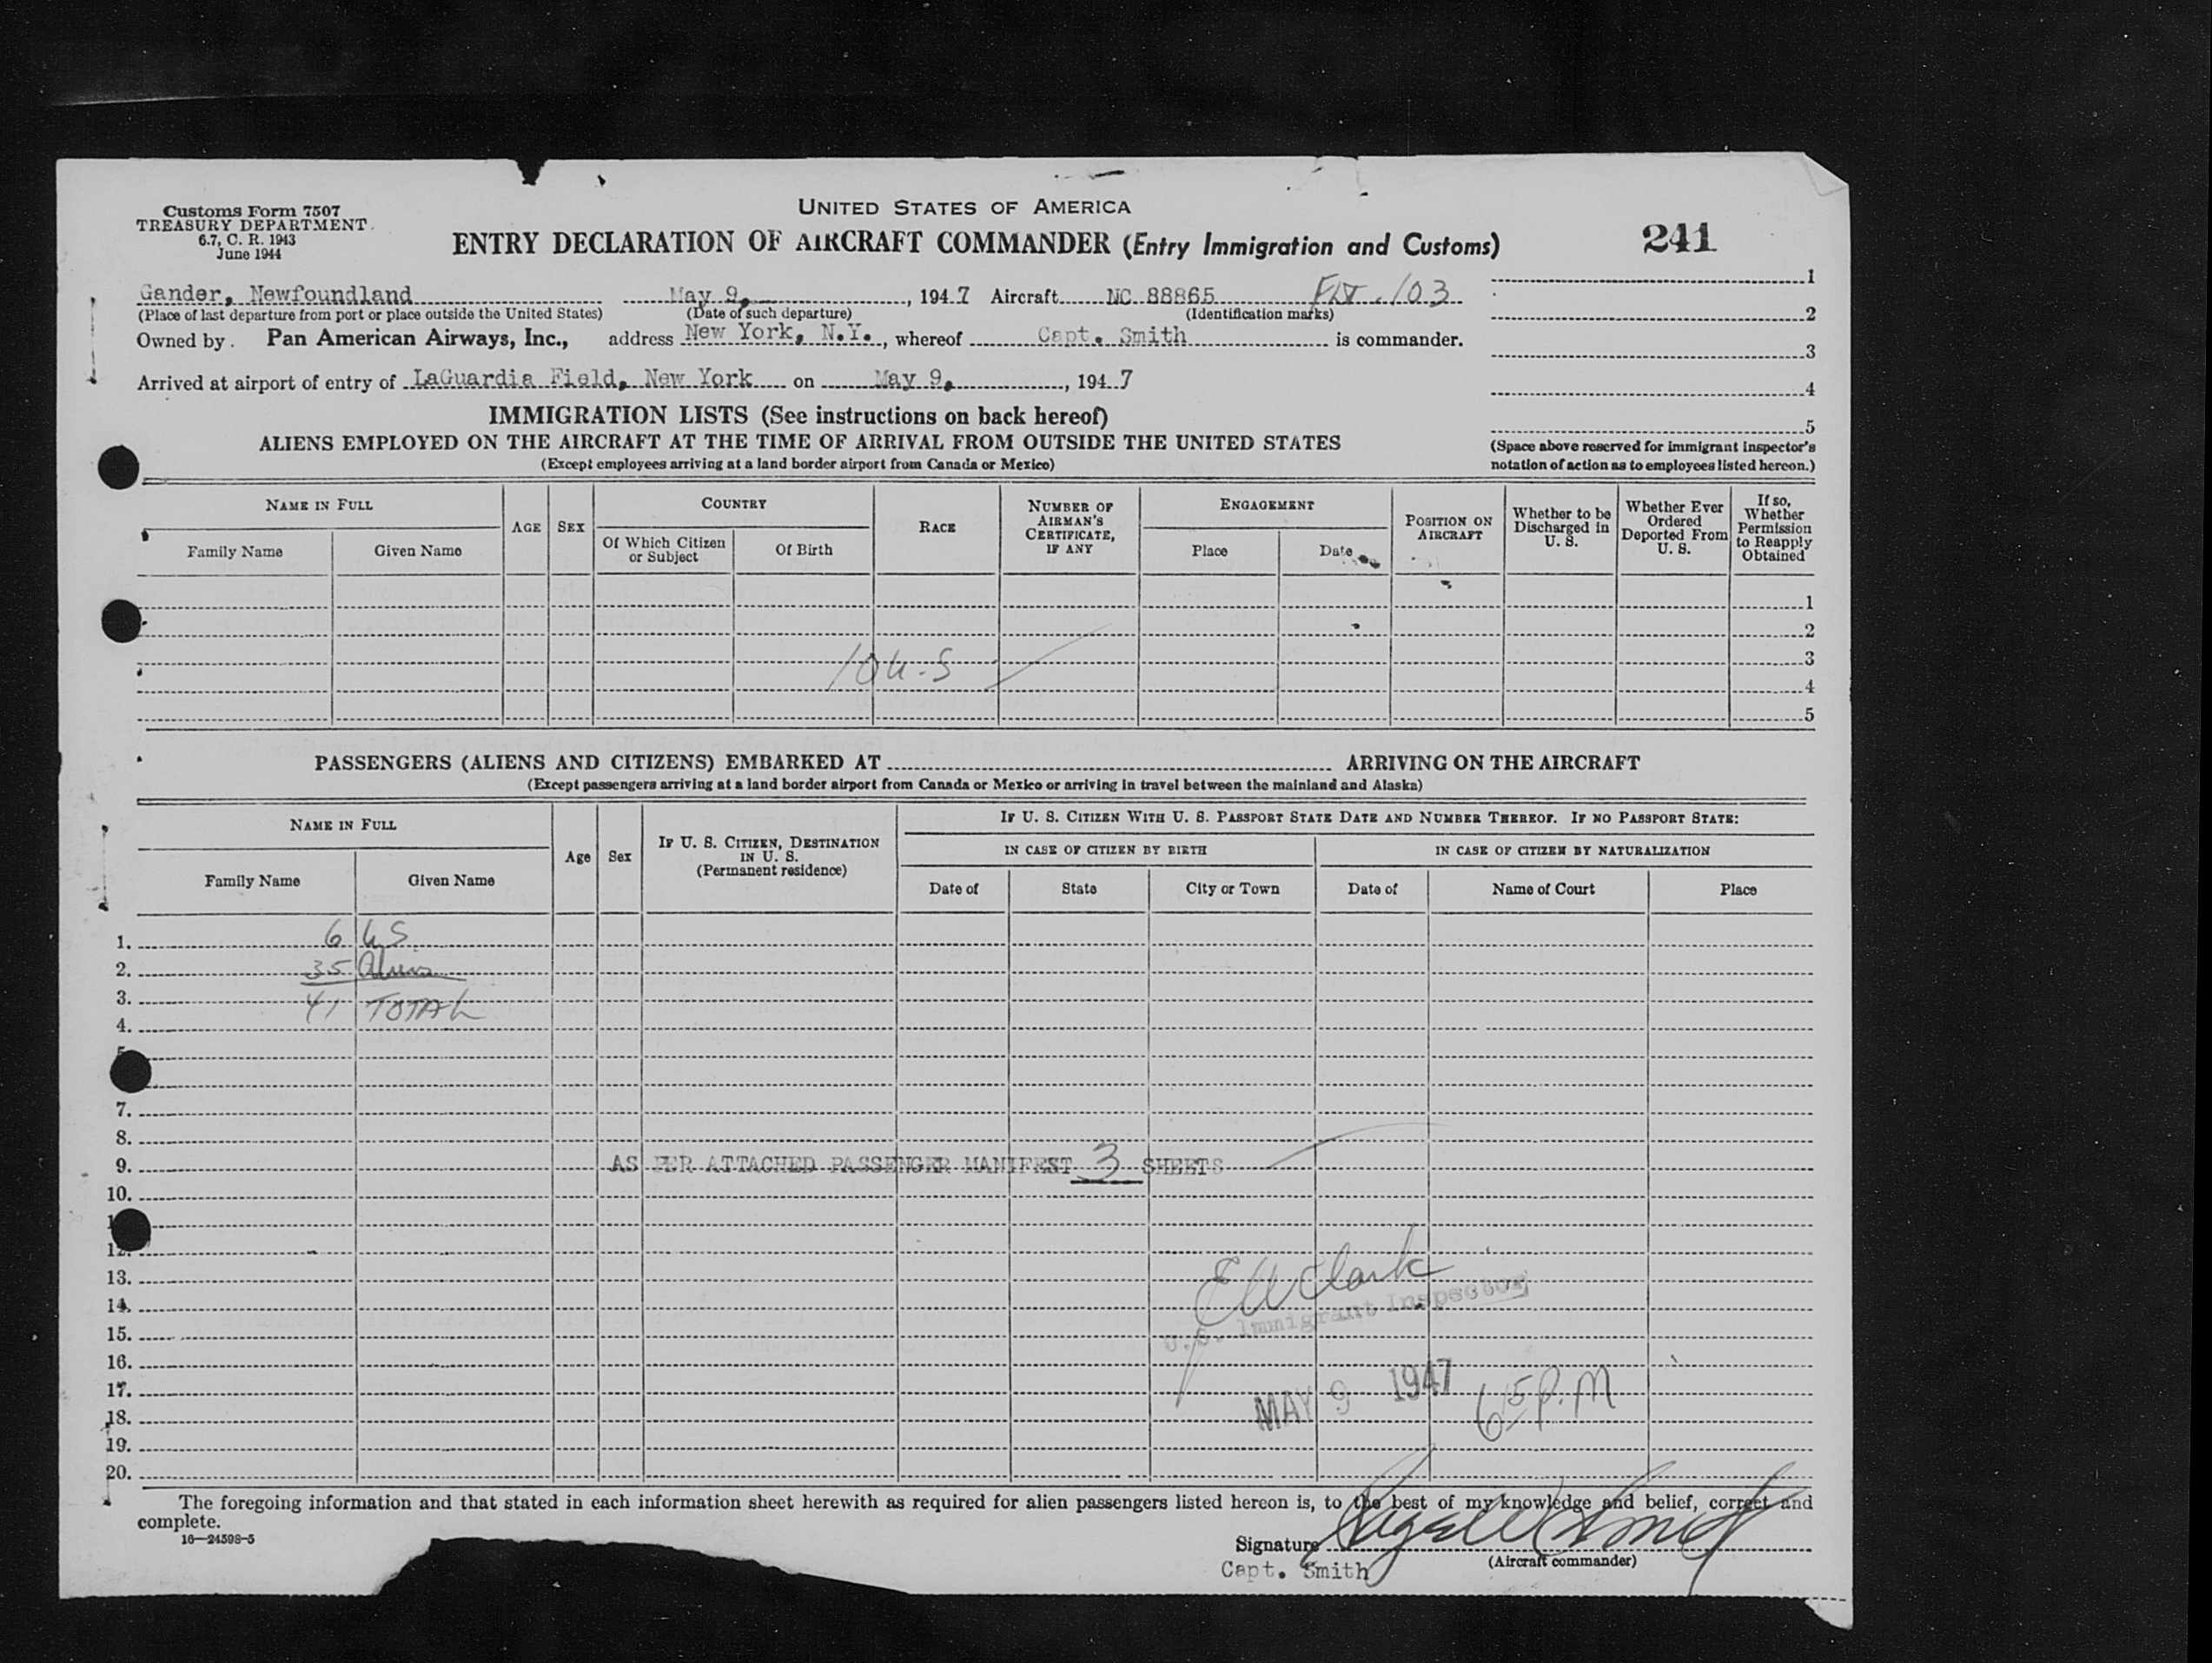 Customs Form 7507
TREASURY DEPARTMENT
6.7, C. R. 1943
June 1944
UNITED STATES OF AMERICA
ENTRY DECLARATION OF AIRCRAFT COMMANDER (Entry Immigration and Customs)
241
Gander, Newfoundland May 9, 1947 Aircraft NC 88865 FLT. 103
(Place of last departure from port or place outside the United States) (Date of such departure) (Identification marks)
Owned by Pan American Airways, Inc., address New York, N.Y., whereof Capt. Smith is commander.
Arrived at airport of entry of LaGuardia Field, New York on May 9, 1947
1
2
3
4
5
(Space above reserved for immigrant inspector's
notation of action as to employees listed hereon.)
IMMIGRATION LISTS (See instructions on back hereof)
ALIENS EMPLOYED ON THE AIRCRAFT AT THE TIME OF ARRIVAL FROM OUTSIDE THE UNITED STATES
(Except employees arriving at a land border airport from Canada or Mexico)
NAME IN FULL
Family Name
Given Name
AGE
SEX
COUNTRY
Of Which Citizen
or Subject
Of Birth
RACE
NUMBER OF
AIRMAN'S
CERTIFICATE,
IF ANY
ENGAGEMENT
Place
Date
POSITION ON
AIRCRAFT
Whether to be
Discharged in
U. S.
Whether Ever
Ordered
Deported From
U. S.
If so,
Whether
Permission
to Reapply
Obtained
1
2
3
10 U.S
4
5
PASSENGERS (ALIENS AND CITIZENS) EMBARKED AT ARRIVING ON THE AIRCRAFT
(Except passengers arriving at a land border airport from Canada or Mexico or arriving in travel between the mainland and Alaska)
NAME IN FULL
Family Name
Given Name
Age
Sex
IF U. S. CITIZEN, DESTINATION
IN U. S.
(Permanent residence)
IF U. S. CITIZEN WITH U. S. PASSPORT STATE DATE AND NUMBER THEREOF. IF NO PASSPORT STATE:
IN CASE OF CITIZEN BY BIRTH
Date of
State
City or Town
IN CASE OF CITIZEN BY NATURALIZATION
Date of
Name of Court
Place
1. 6 US
2. 35 Aliens
3. 41 TOTAL
4.
7.
8.
9. AS PER ATTACHED PASSENGER MANIFEST 3 SHEETS
10.
12.
13. Clark
14. U.S. Immigrant Inspector
15.
16.
17. MAY 9 1947 6 15 P.M
18.
19.
20.
The foregoing information and that stated in each information sheet herewith as required for alien passengers listed hereon is, to the best of my knowledge and belief, correct and
complete.
16—24598-5
Signature Smith
(Aircraft commander)
Capt. Smith